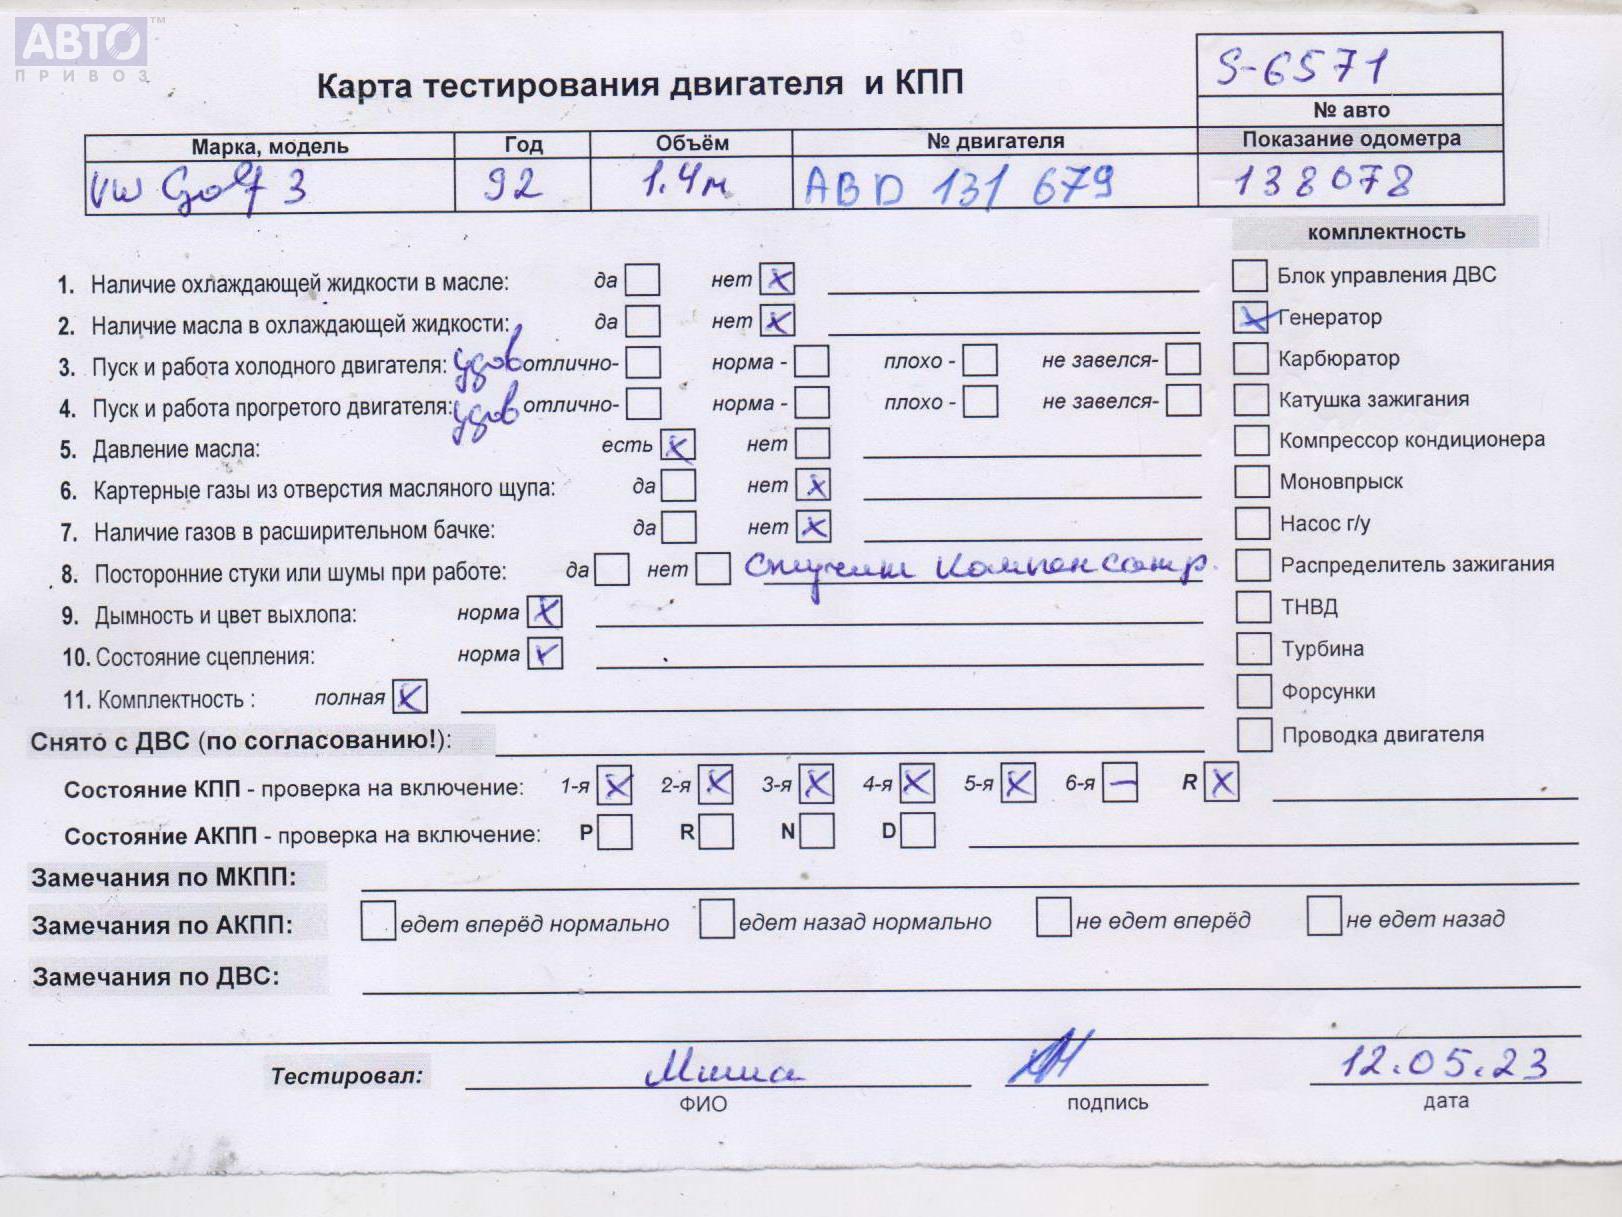 АВТО™
ПРИВОЗ
Карта тестирования двигателя и КПП
S-6571
№ авто
Марка, модель Год Объём № двигателя Показание одометра
VW Golf 3 92 1.4м ABD 131 679 138078
комплектность
1. Наличие охлаждающей жидкости в масле: да нет x
Блок управления ДВС
2. Наличие масла в охлаждающей жидкости: да нет x
x Генератор
3. Пуск и работа холодного двигателя: удов отлично- норма - плохо - не завелся-
Карбюратор
4. Пуск и работа прогретого двигателя: удов отлично- норма - плохо - не завелся-
Катушка зажигания
5. Давление масла: есть x нет
Компрессор кондиционера
6. Картерные газы из отверстия масляного щупа: да нет x
Моновпрыск
7. Наличие газов в расширительном бачке: да нет x
Насос г/у
8. Посторонние стуки или шумы при работе: да нет компенсатр.
Распределитель зажигания
9. Дымность и цвет выхлопа: норма x
ТНВД
10. Состояние сцепления: норма v
Турбина
11. Комплектность : полная x
Форсунки
Снято с ДВС (по согласованию!):
Проводка двигателя
Состояние КПП - проверка на включение: 1-я x 2-я x 3-я x 4-я x 5-я x 6-я – R x
Состояние АКПП - проверка на включение: P R N D
Замечания по МКПП:
Замечания по АКПП: едет вперёд нормально едет назад нормально не едет вперёд не едет назад
Замечания по ДВС:
Тестировал: Миша 12.05.23
ФИО подпись дата